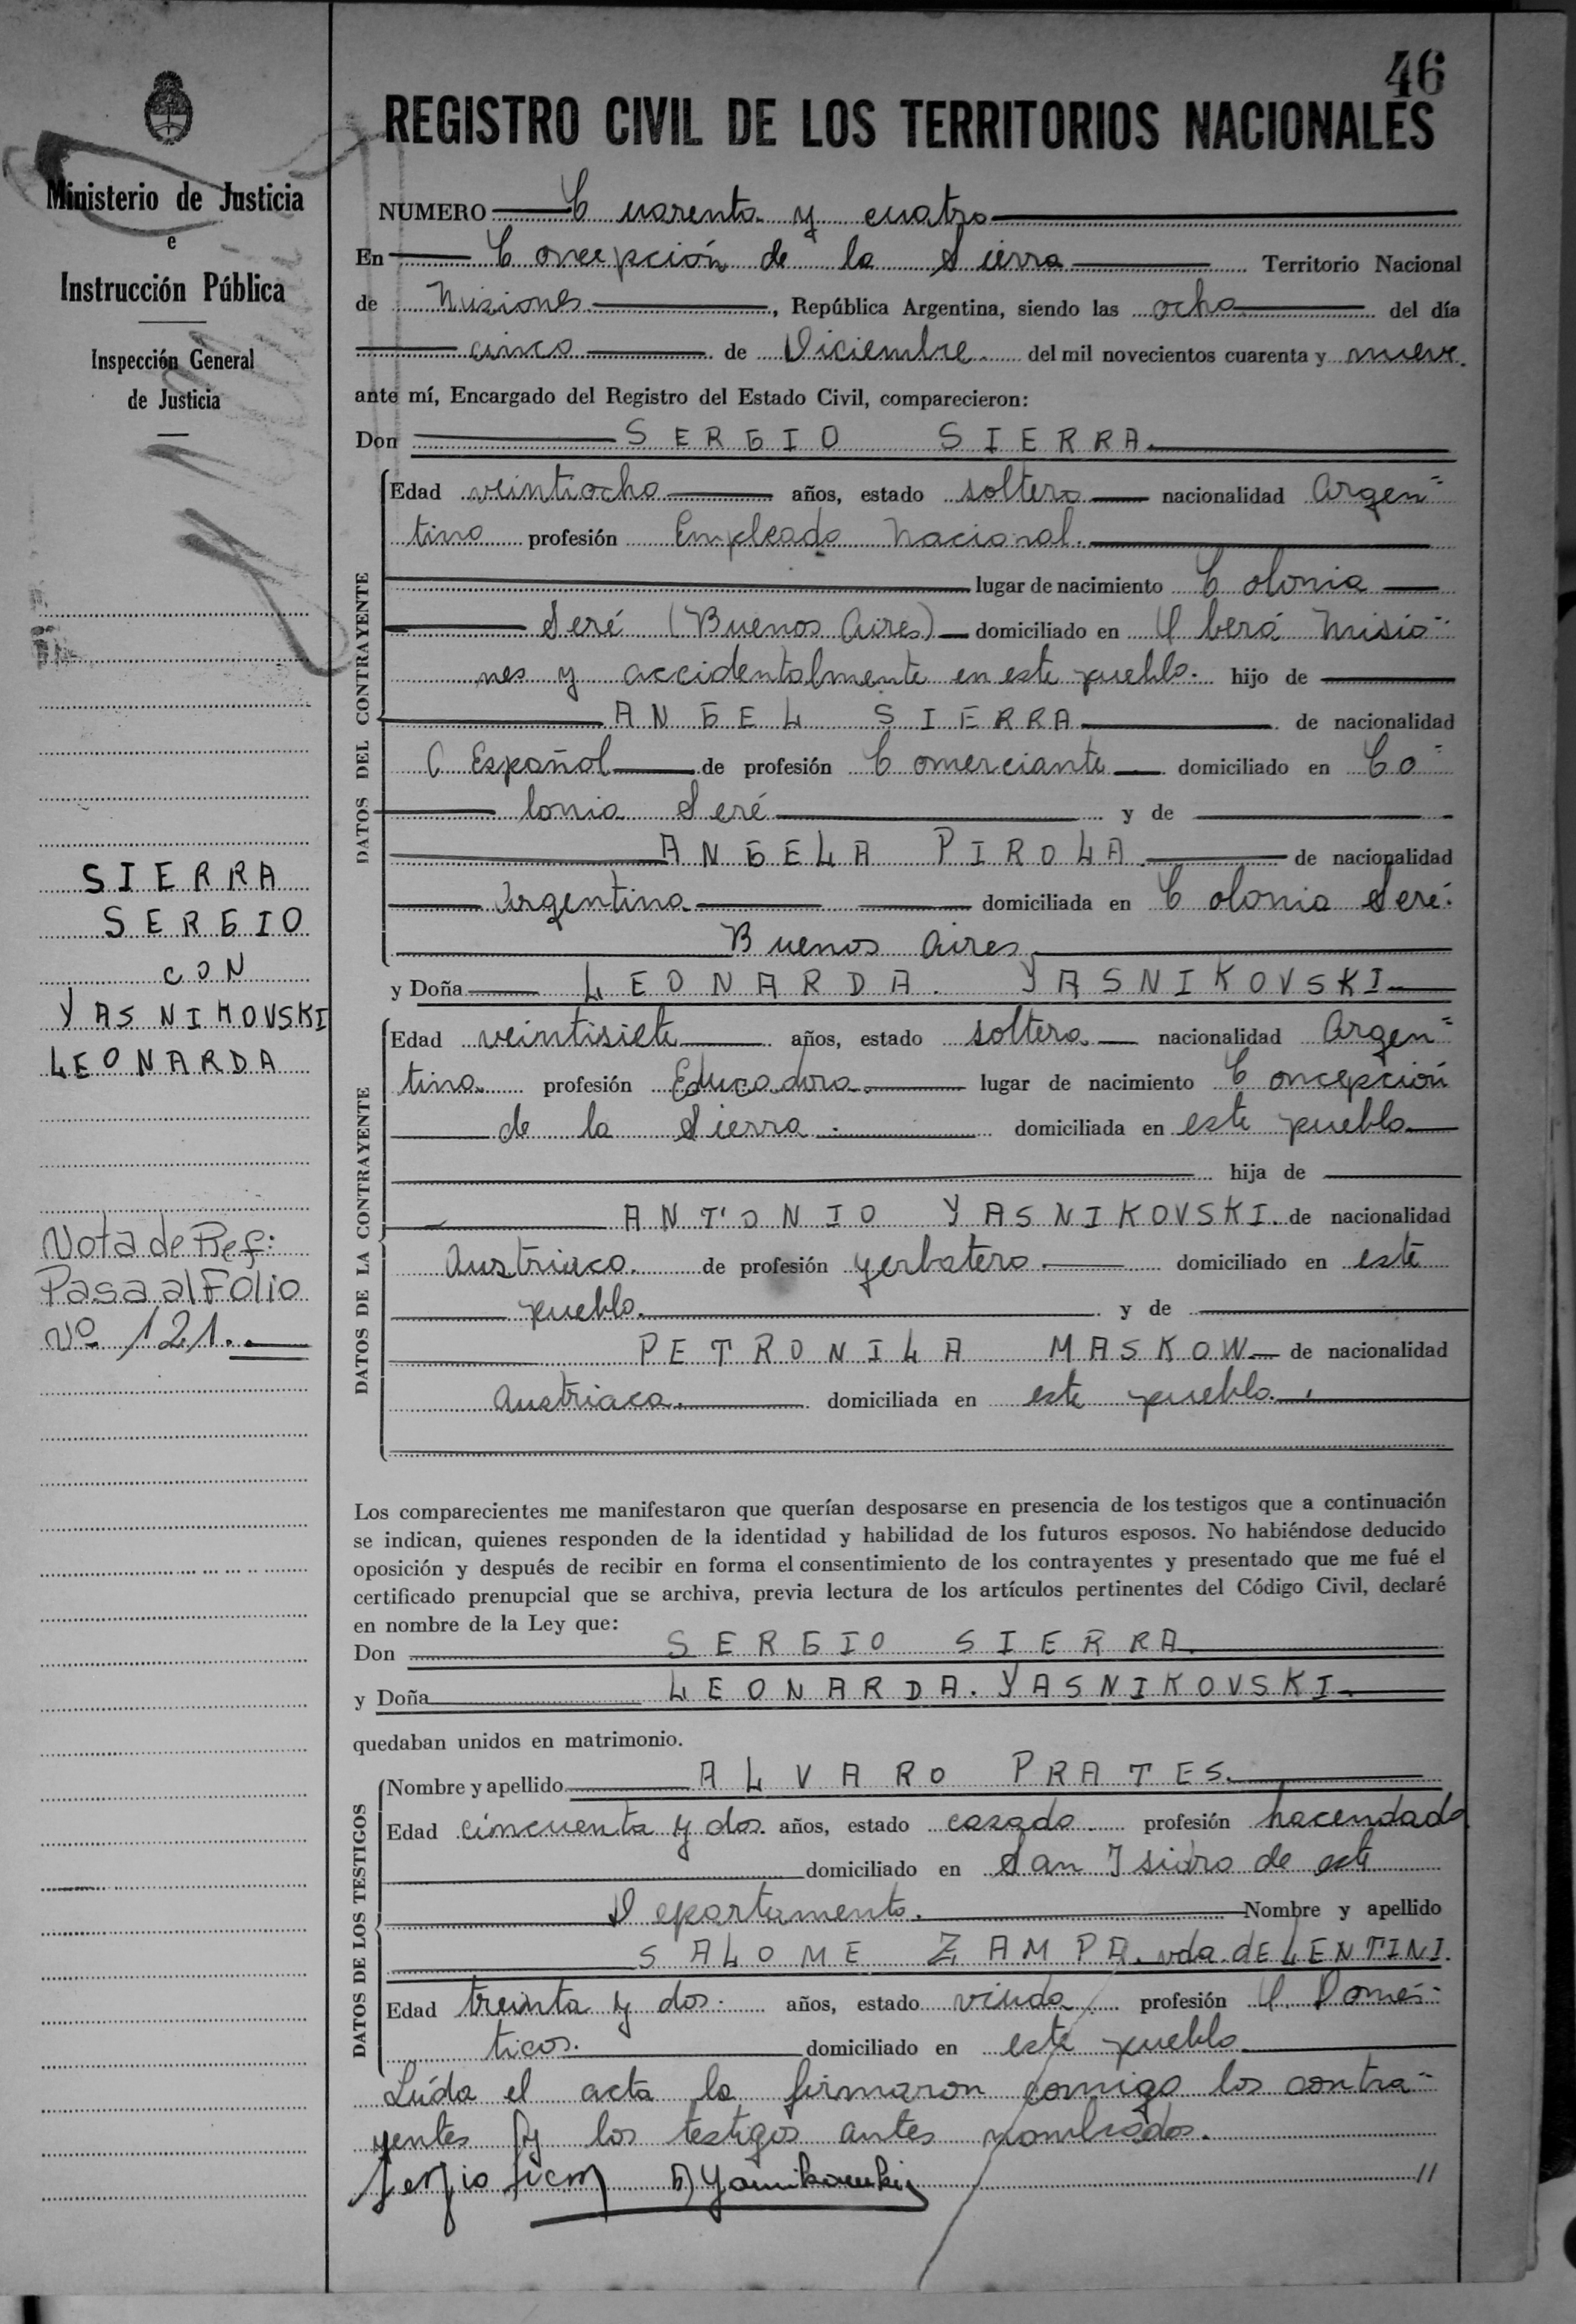 46
REGISTRO CIVIL DE LOS TERRITORIOS NACIONALES
Ministerio de Justicia
e
Instrucción Pública
Inspección General
de Justicia
NUMERO Cuarenta y cuatro
En Concepción de la Sierra Territorio Nacional
de Misiones, República Argentina, siendo las ocho del día
cinco de Diciembre del mil novecientos cuarenta y nueve.
ante mí, Encargado del Registro del Estado Civil, comparecieron:
Don SERGIO SIERRA.
DATOS DEL CONTRAYENTE
Edad veintiocho años, estado soltero nacionalidad Argen=
tino profesión Empleado Nacional.
lugar de nacimiento Colonia
Seré (Buenos Aires) domiciliado en Yberá Misio=
nes y accidentalmente en este pueblo. hijo de
ANGEL SIERRA de nacionalidad
Español de profesión Comerciante domiciliado en Co=
lonia Seré y de
ANGELA PIROLA. de nacionalidad
Argentina domiciliada en Colonia Seré.
Buenos Aires.
SIERRA
SERGIO
CON
YASNIKOVSKI
LEONARDA
y Doña LEONARDA. YASNIKOVSKI
DATOS DE LA CONTRAYENTE
Edad veintisiete años, estado soltera nacionalidad Argen=
tina profesión Educadora. lugar de nacimiento Concepción
de la Sierra. domiciliada en este pueblo
hija de
ANTONIO YASNIKOVSKI. de nacionalidad
Austriaco. de profesión yerbatero. domiciliado en este
pueblo. y de
PETRONILA MASKOW de nacionalidad
Austriaca. domiciliada en este pueblo.
Nota de Ref:
Pasa al Folio
Nº 121.
Los comparecientes me manifestaron que querían desposarse en presencia de los testigos que a continuación
se indican, quienes responden de la identidad y habilidad de los futuros esposos. No habiéndose deducido
oposición y después de recibir en forma el consentimiento de los contrayentes y presentado que me fué el
certificado prenupcial que se archiva, previa lectura de los artículos pertinentes del Código Civil, declaré
en nombre de la Ley que:
Don SERGIO SIERRA.
y Doña LEONARDA. YASNIKOVSKI.
quedaban unidos en matrimonio.
DATOS DE LOS TESTIGOS
Nombre y apellido ALVARO PRATES.
Edad cincuenta y dos. años, estado casado. profesión hacendado
domiciliado en San Isidro de este
Departamento. Nombre y apellido
SALOME ZAMPA. vda. dE LENTINI.
Edad treinta y dos. años, estado viuda profesión Q. Domés=
ticos. domiciliado en este pueblo.
Leída el acta la firmaron comigo los contra=
yentes y los testigos antes nombrados.
Sergio Sierra Yasnikowski //